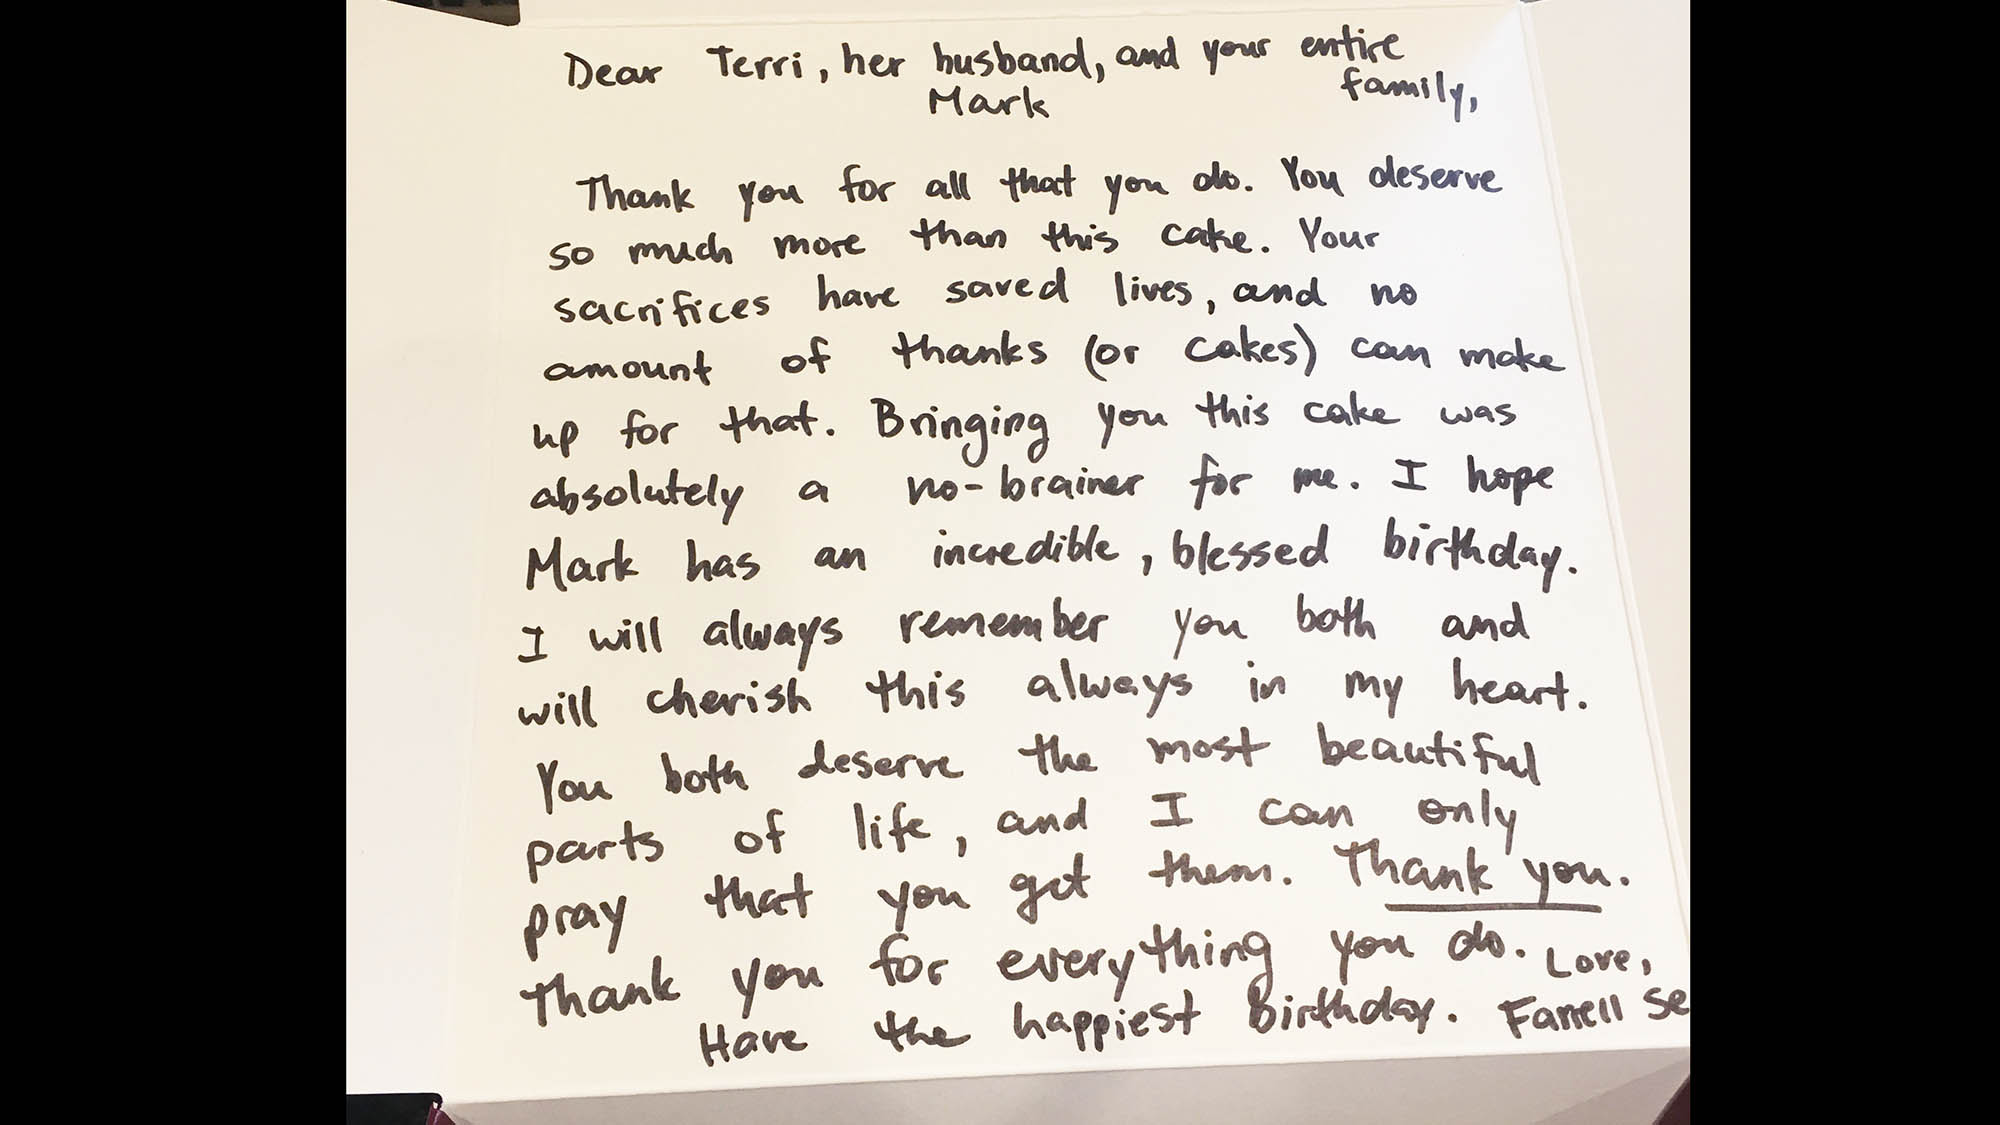 Dear Terri, her husband, and your entire
Mark family,
Thank you for all that you do. You deserve
so much more than this cake. Your
sacrifices have saved lives, and no
amount of thanks (or cakes) can make
up for that. Bringing you this cake was
absolutely a no-brainer for me. I hope
Mark has an incredible, blessed birthday.
I will always remember you both and
will cherish this always in my heart.
You both deserve the most beautiful
parts of life, and I can only
pray that you get them. Thank you.
Thank you for everything you do. Love,
Have the happiest birthday. Farrell Se